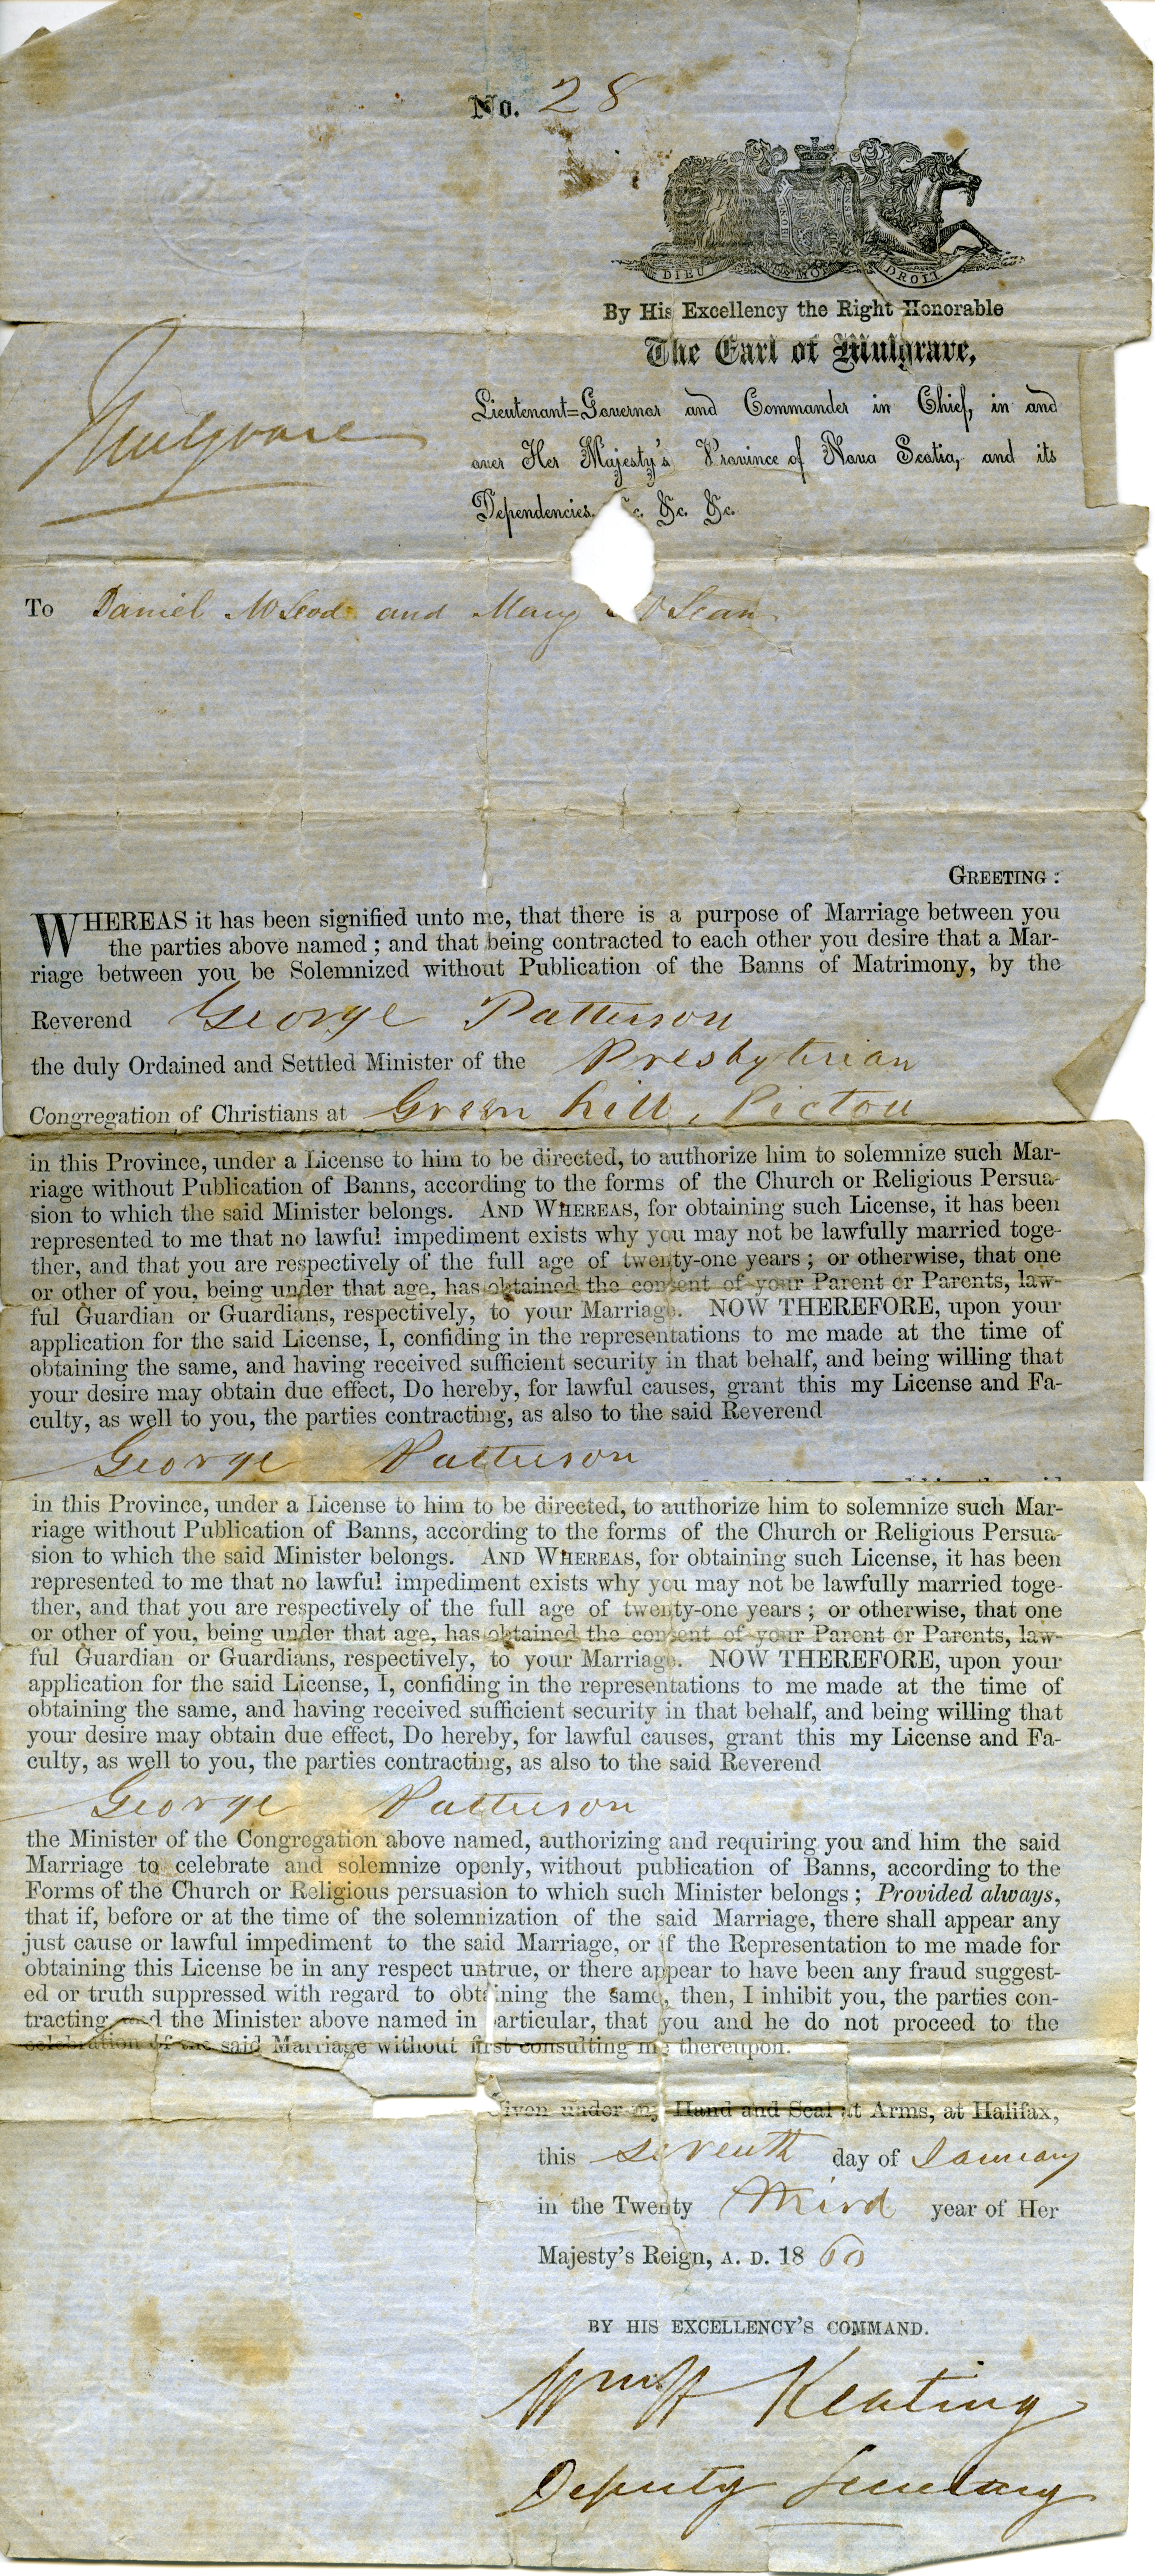 No. 28
DIEU ET MON DROIT
By His Excellency the Right Honorable
The Earl of Mulgrave,
Mulgrave
Lieutenant=Governor and Commander in Chief, in and
over Her Majesty's Province of Nova Scotia, and its
Dependencies, &c. &c. &c.
To Daniel McLeod and Mary McLean
GREETING:
WHEREAS it has been signified unto me, that there is a purpose of Marriage between you
the parties above named; and that being contracted to each other you desire that a Mar-
riage between you be Solemnized without Publication of the Banns of Matrimony, by the
Reverend George Patterson
the duly Ordained and Settled Minister of the Presbyterian
Congregation of Christians at Green hill, Pictou
in this Province, under a License to him to be directed, to authorize him to solemnize such Mar-
riage without Publication of Banns, according to the forms of the Church or Religious Persua-
sion to which the said Minister belongs. AND WHEREAS, for obtaining such License, it has been
represented to me that no lawful impediment exists why you may not be lawfully married toge-
ther, and that you are respectively of the full age of twenty-one years; or otherwise, that one
or other of you, being under that age, has obtained the consent of your Parent or Parents, law-
ful Guardian or Guardians, respectively, to your Marriage. NOW THEREFORE, upon your
application for the said License, I, confiding in the representations to me made at the time of
obtaining the same, and having received sufficient security in that behalf, and being willing that
your desire may obtain due effect, Do hereby, for lawful causes, grant this my License and Fa-
culty, as well to you, the parties contracting, as also to the said Reverend
George Patterson
in this Province, under a License to him to be directed, to authorize him to solemnize such Mar-
riage without Publication of Banns, according to the forms of the Church or Religious Persua-
sion to which the said Minister belongs. AND WHEREAS, for obtaining such License, it has been
represented to me that no lawful impediment exists why you may not be lawfully married toge-
ther, and that you are respectively of the full age of twenty-one years; or otherwise, that one
or other of you, being under that age, has obtained the consent of your Parent or Parents, law-
ful Guardian or Guardians, respectively, to your Marriage. NOW THEREFORE, upon your
application for the said License, I, confiding in the representations to me made at the time of
obtaining the same, and having received sufficient security in that behalf, and being willing that
your desire may obtain due effect, Do hereby, for lawful causes, grant this my License and Fa-
culty, as well to you, the parties contracting, as also to the said Reverend
George Patterson
the Minister of the Congregation above named, authorizing and requiring you and him the said
Marriage to celebrate and solemnize openly, without publication of Banns, according to the
Forms of the Church or Religious persuasion to which such Minister belongs; Provided always,
that if, before or at the time of the solemnization of the said Marriage, there shall appear any
just cause or lawful impediment to the said Marriage, or if the Representation to me made for
obtaining this License be in any respect untrue, or there appear to have been any fraud suggest-
ed or truth suppressed with regard to obtaining the same, then, I inhibit you, the parties con-
tracting, and the Minister above named in particular, that you and he do not proceed to the
celebration of the said Marriage without first consulting me thereupon.
Given under my Hand and Seal at Arms, at Halifax,
this seventh day of January
in the Twenty Third year of Her
Majesty's Reign, A. D. 1860
BY HIS EXCELLENCY'S COMMAND.
Wm H Keating
Deputy Secretary